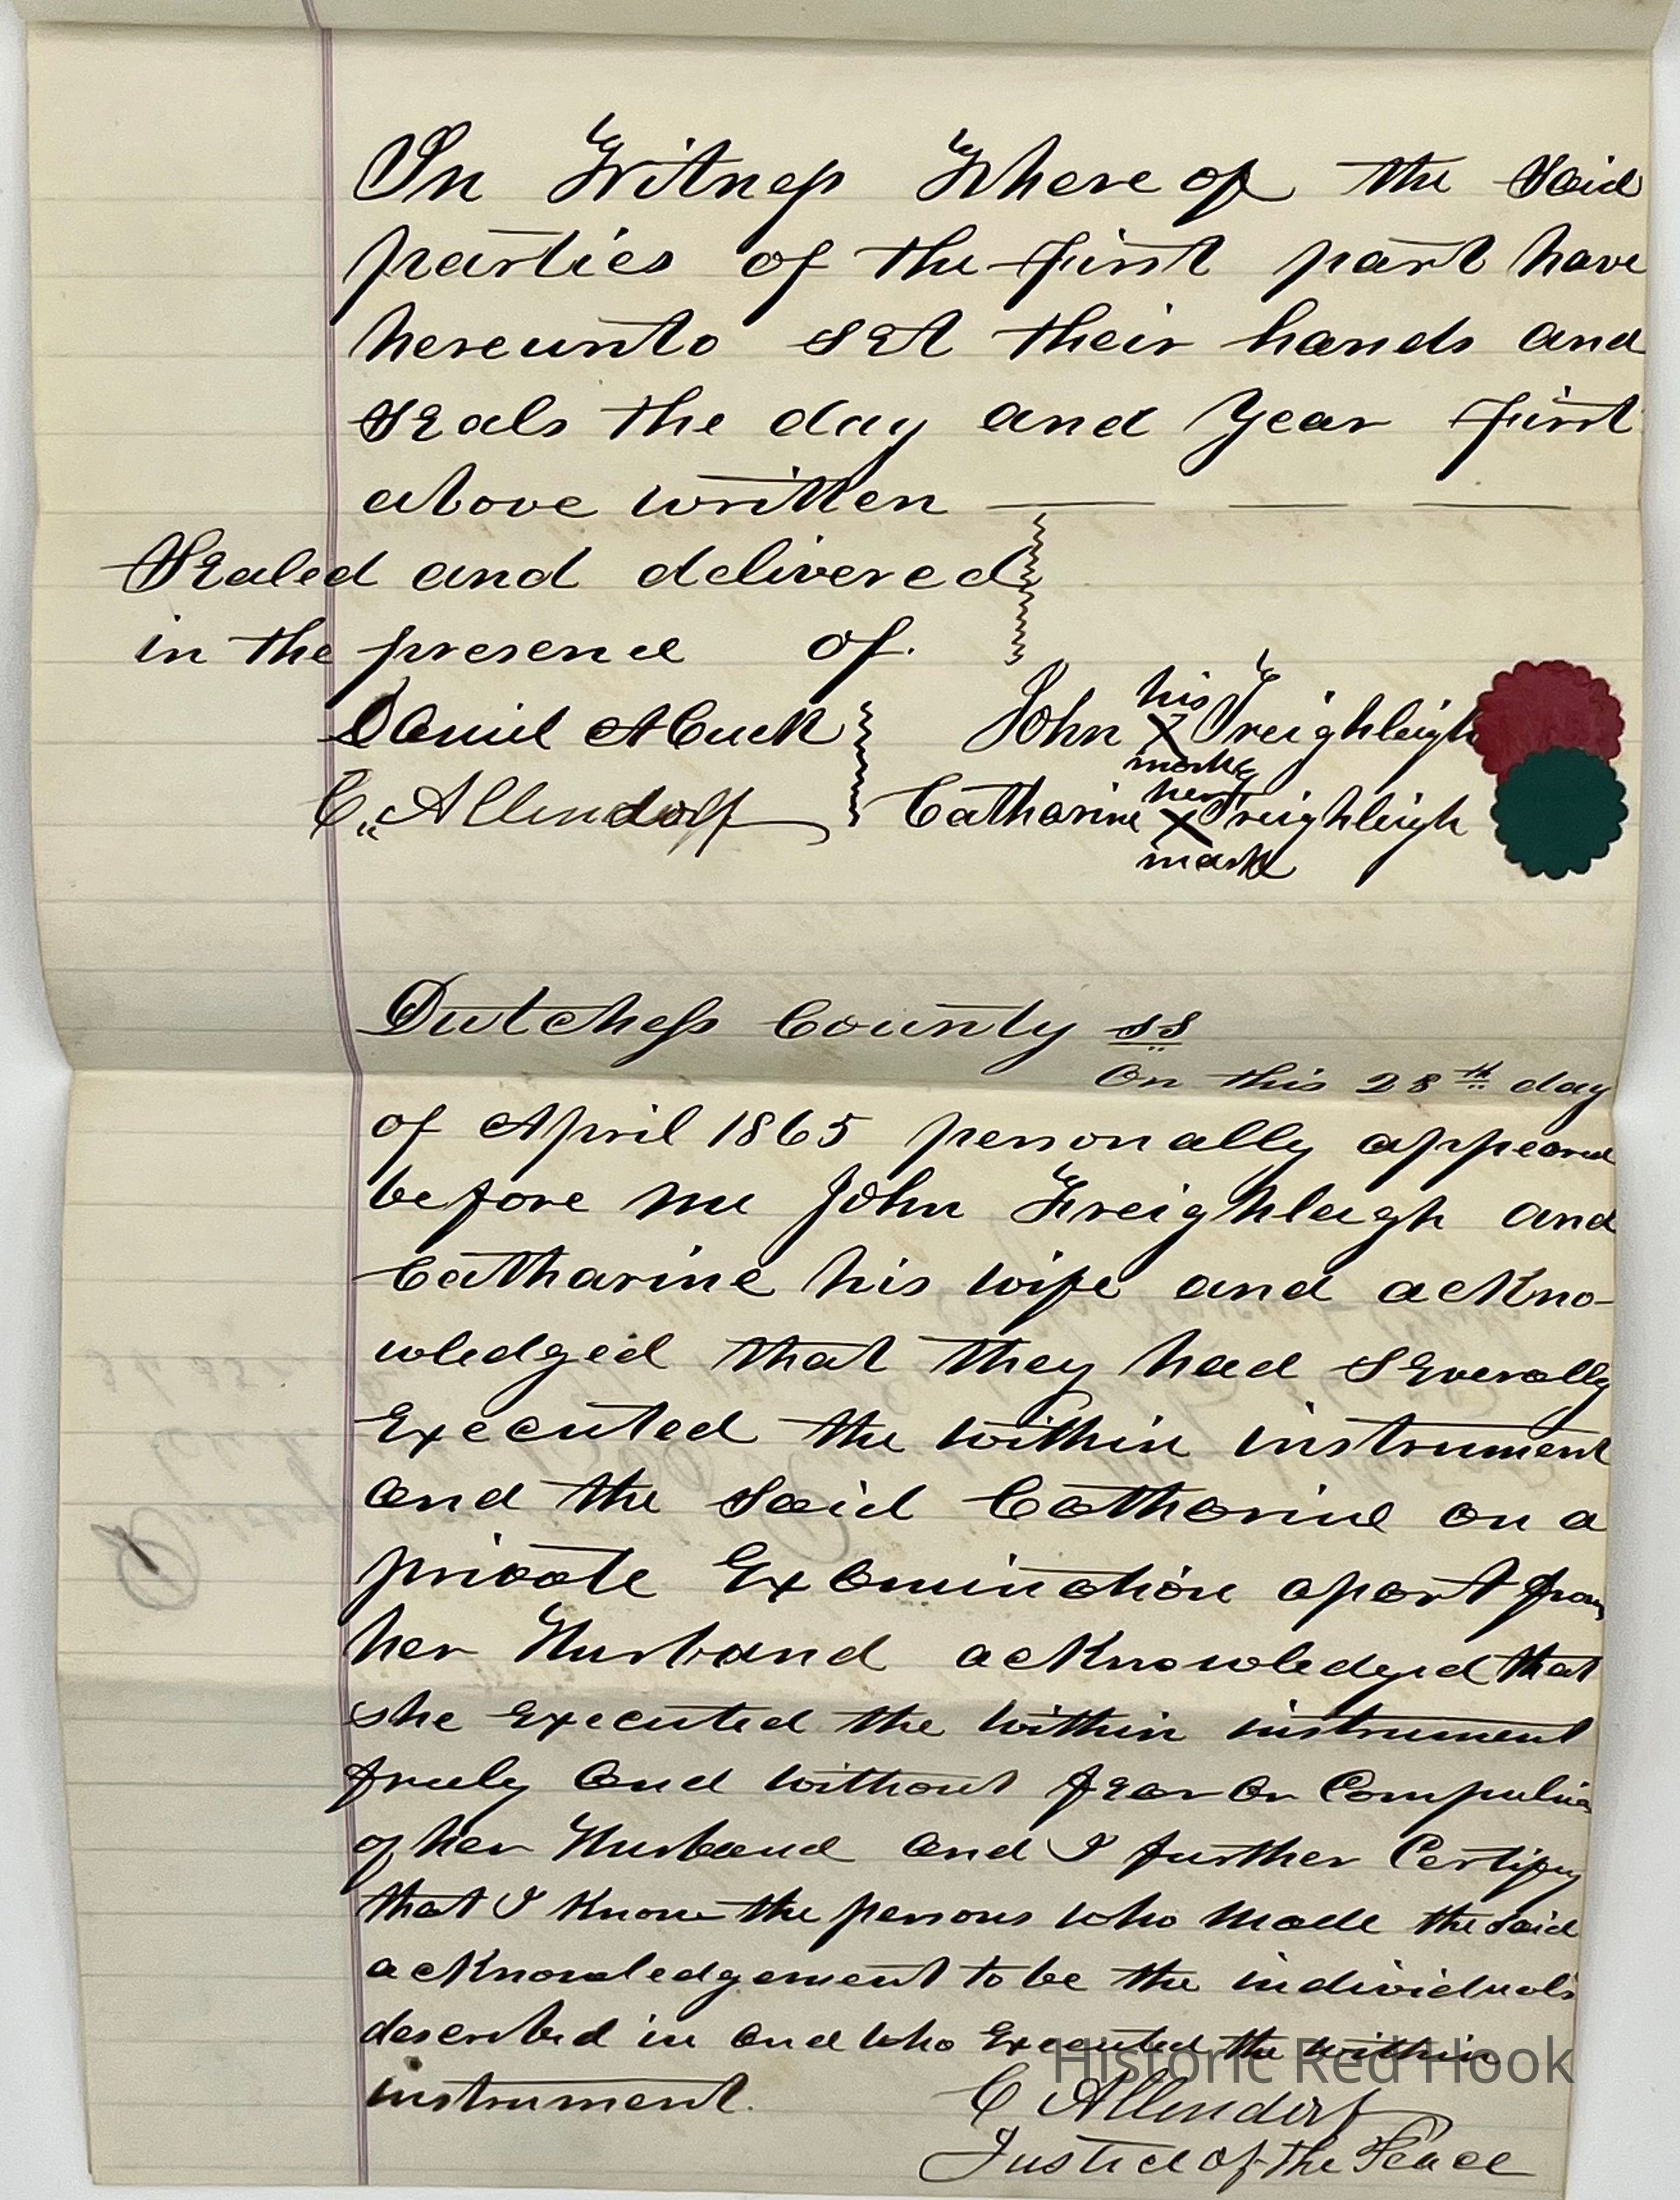 In Witness Where of the Said
parties of the first part have
hereunto set their hands and
Seals the day and Year first
above written
Sealed and delivered
in the presence of.
his
John X Freighleigh
mark
Daniel
C. Allendorf
her
Catharine X Freighleigh
mark
Dutchess County ss
On this 28th day
of April 1865 personally appeared
before me John Freighleigh and
Catharine his wife and ackno-
wledged that they had severally
Executed the within instrument
and the Said Catharine on a
private Examination apart from
her Husband acknowledged that
she Executed the within instrument
freely and without fear or Compulsion
of her Husband and I further Certify
that I Know the persons who made the Said
acknowledgement to be the individuals
described in and who Executed the within
instrument.
C Allendorf
Justice of the Peace
Historic Red Hook